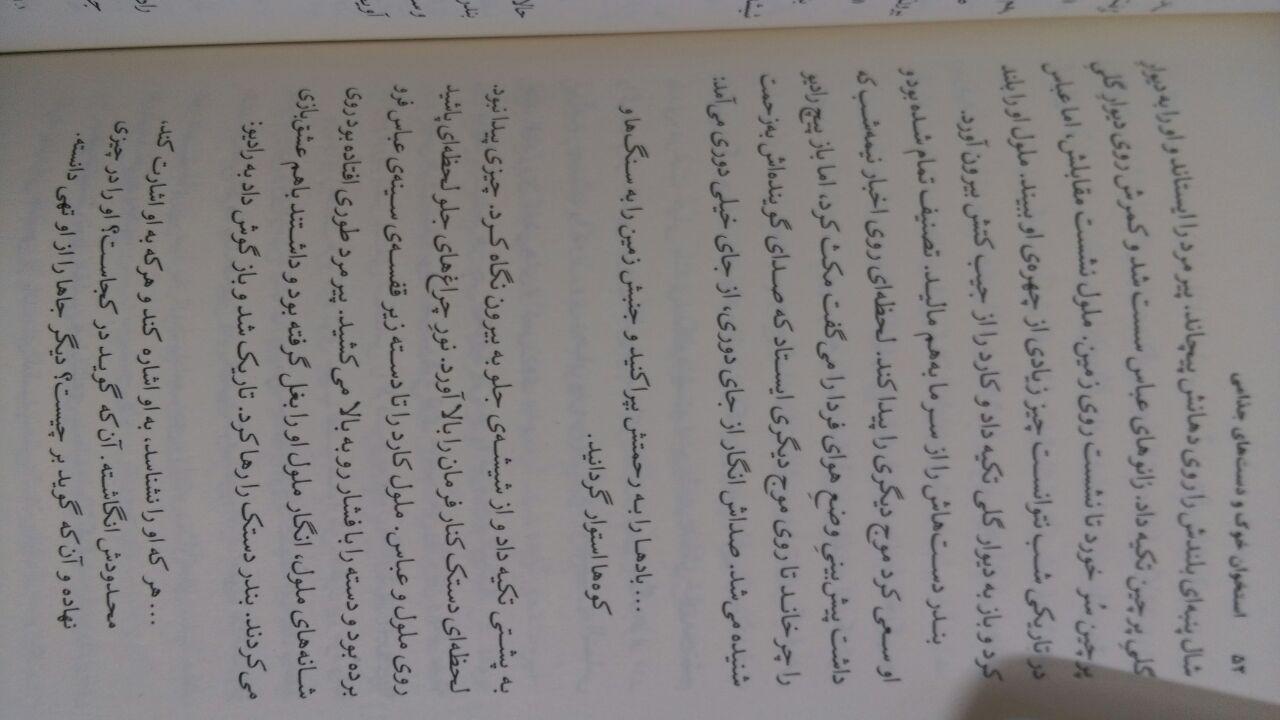 ۵۲ استخوان خوک و دست‌های جذامی
شال پنبه‌ای بلندش را روی دهانش پیچاند. پیرمرد را ایستاند و او را به دیوارِ
گلیِ پرچین تکیه داد. زانوهای عباس سست شد و کمرش روی دیوارِ گلیِ
پرچین سُر خورد تا نشست روی زمین. ملول نشست مقابلش، اما عباس
در تاریکی شب نتوانست چیز زیادی از چهره‌ی او ببیند. ملول او را بلند
کرد و باز به دیوار گلی تکیه داد و کارد را از جیب کتش بیرون آورد.
بندر دست‌هاش را از سرما به‌هم مالید. تصنیف تمام شده بود و
او سعی کرد موج دیگری را پیدا کند. لحظه‌ای روی اخبار نیمه‌شب که
داشت پیش‌بینیِ وضعِ هوای فردا را می‌گفت مکث کرد، اما باز پیچ رادیو
را چرخاند تا روی موج دیگری ایستاد که صدای گوینده‌اش به‌زحمت
شنیده می‌شد. صداش انگار از جای دوری، از جای خیلی دوری می‌آمد:
... بادها را به رحمتش بپراکنید و جنبش زمین را به سنگ‌ها و
کوه‌ها استوار گردانید.
به پشتی تکیه داد و از شیشه‌ی جلو به بیرون نگاه کرد. چیزی پیدا نبود.
لحظه‌ای دستک کنار فرمان را بالا آورد. نورِ چراغ‌های جلو لحظه‌ای پاشید
روی ملول و عباس. ملول کارد را تا دسته زیر قفسه‌ی سینه‌ی عباس فرو
برده بود و دسته را با فشار رو به بالا می‌کشید. پیرمرد طوری افتاده بود روی
شانه‌های ملول، انگار ملول او را بغل گرفته بود و داشتند باهم عشق‌بازی
می‌کردند. بندر دستک را رها کرد. تاریک شد و باز گوش داد به رادیو:
... هر که او را نشناسد، به او اشاره کند و هر که به او اشارت کند،
محدودش انگاشته. آن که گوید در کجاست؟ او را در چیزی
نهاده و آن که گوید بر چیست؟ دیگر جاها را از او تهی دانسته.